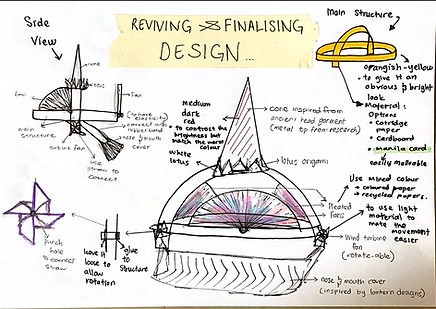 REVIVING & FINALISING
DESIGN...
Side
View
cone
fan
main
structure
turbine fan
rubber band
nose & mouth
cover
use
straw to
connect
Main Structure
orangish-yellow
to give it an
obvious & bright
look
Material:
Options
• Catridge
paper
• Cardboard
• manila card
easily malleable
medium
dark
red
to contrast the
brightness but
match the warm
colour
white
lotus
cone inspired from
ancient head garment
(metal top from research)
lotus origami
Pleated
Fans
Use mixed colour
→ coloured paper
→ recycled papers.
to use light
material to
make the
movement
easier
Wind turbine
fan
(rotate-able)
nose & mouth cover
(inspired by lantern designs)
punch
hole
to connect
straw
leave it
loose to
allow
rotation
glue
to
structure